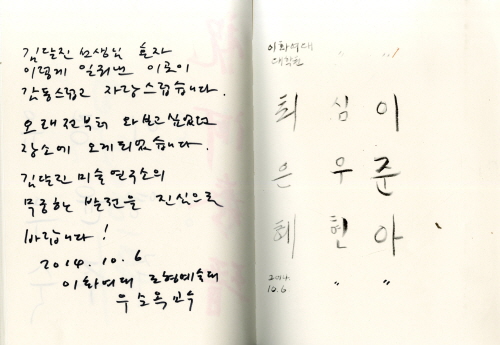 김달진 선생님 혼자
이렇게 일궈낸 이곳이
감동스럽고 자랑스럽습니다.
오래전부터 와보고 싶었던
장소에 오게되었습니다.
김달진 미술연구소의
무궁한 발전을 진심으로
바랍니다!
2014. 10. 6
이화여대 조형예술대
우순옥 교수
이화여대 〃 〃
대학원
최 심 이
은 우 준
혜 현 아
2014. 〃 〃
10.6